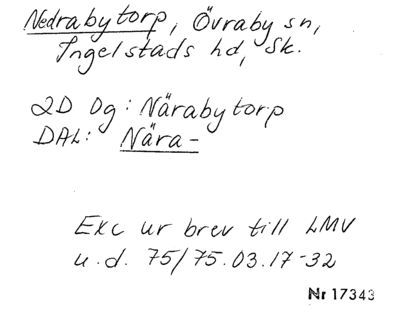 Nedrabytorp, Övraby sn,
Ingelstads hd, Sk.
2D Og: Närabytorp
DAL: Nära-
Exc ur brev till LMV
u.d. 75/75.03.17-32
Nr 17343